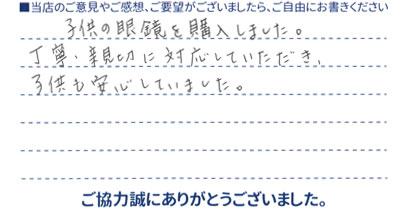 ■当店のご意見やご感想、ご要望がございましたら、ご自由にお書きください
子供の眼鏡を購入しました。
丁寧・親切に対応していただき、
子供も安心していました。
ご協力誠にありがとうございました。